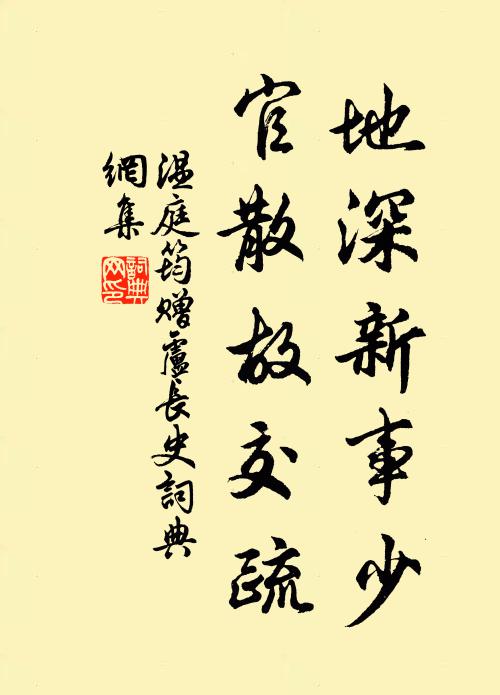 地深新事少
官散故交疏
温庭筠赠盧長史詞典
網集
詞典網印